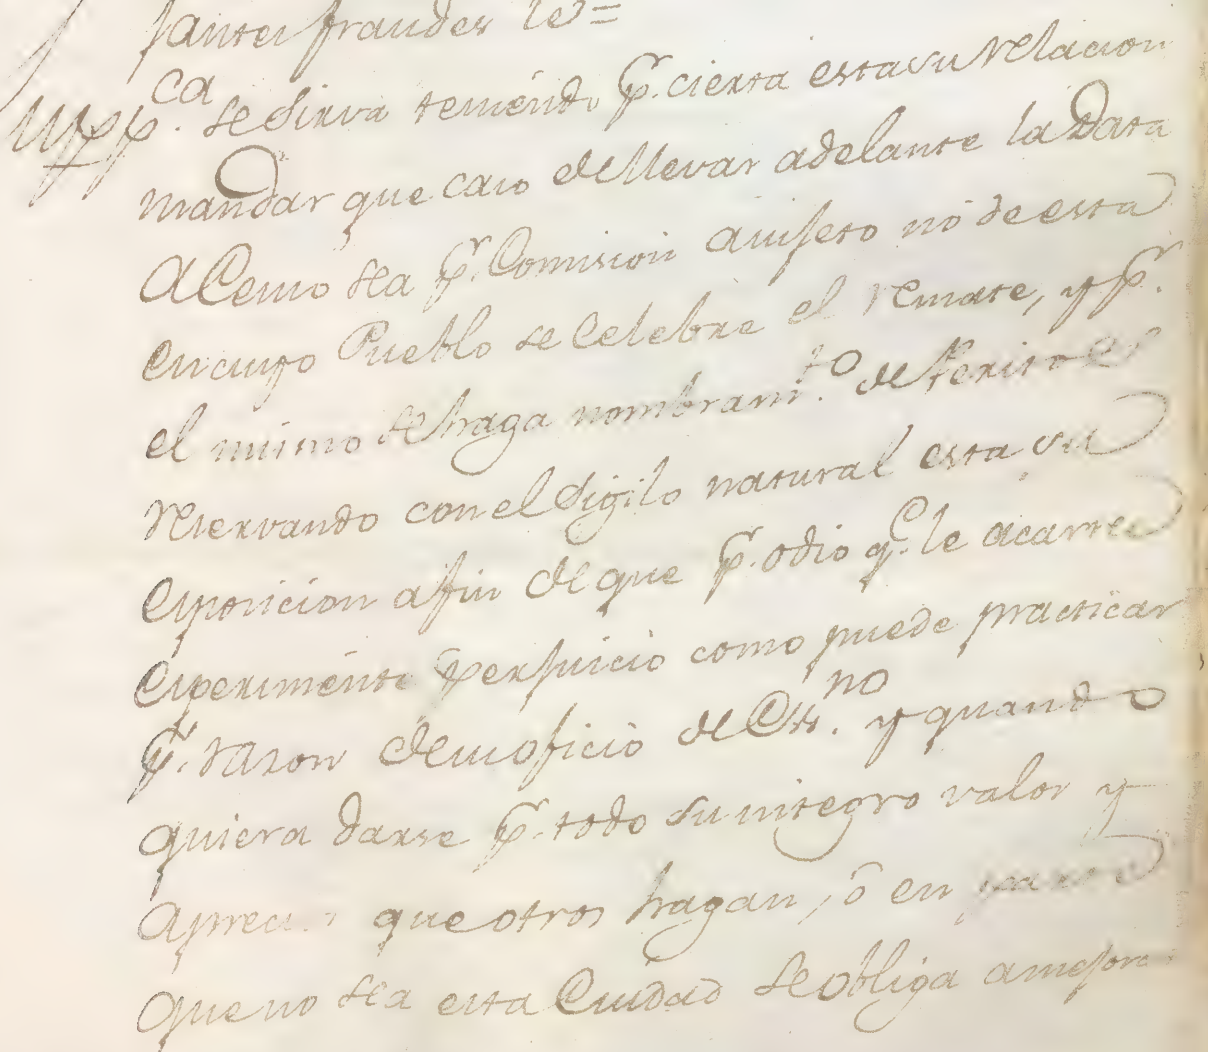 santes fraudes
ca se sirva teniendo pr. cierta esta su relacion
mandar que caso de llevar adelante la Data
a Censo sea pr. Comision a sujeto no de esta
en cuyo Pueblo se Celebre el remate, y pr.
el mismo se haga nombram.to de Peritos
reservando con el sigilo natural esta su
exposicion a fin de que pr. odio q.e le acarree
experimente perjuicio como puede practicar
pr. razon de su oficio de Ess.no y quando
quiera darse pr. todo su integro valor y
aprecio que otros hagan, ó en parte
que no sea esta Ciudad se obliga a mejora